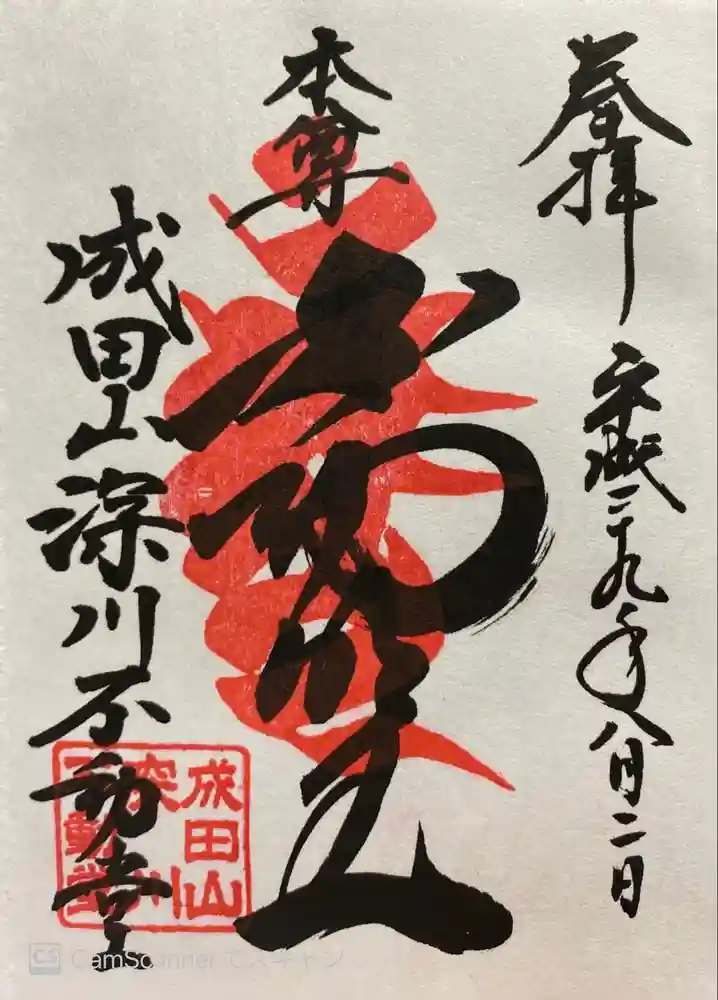 奉拝
平成二十九年八月二日
本尊
不動明王
成田山深川不動堂
成田山
深川
不動堂
CamScanner でスキャン